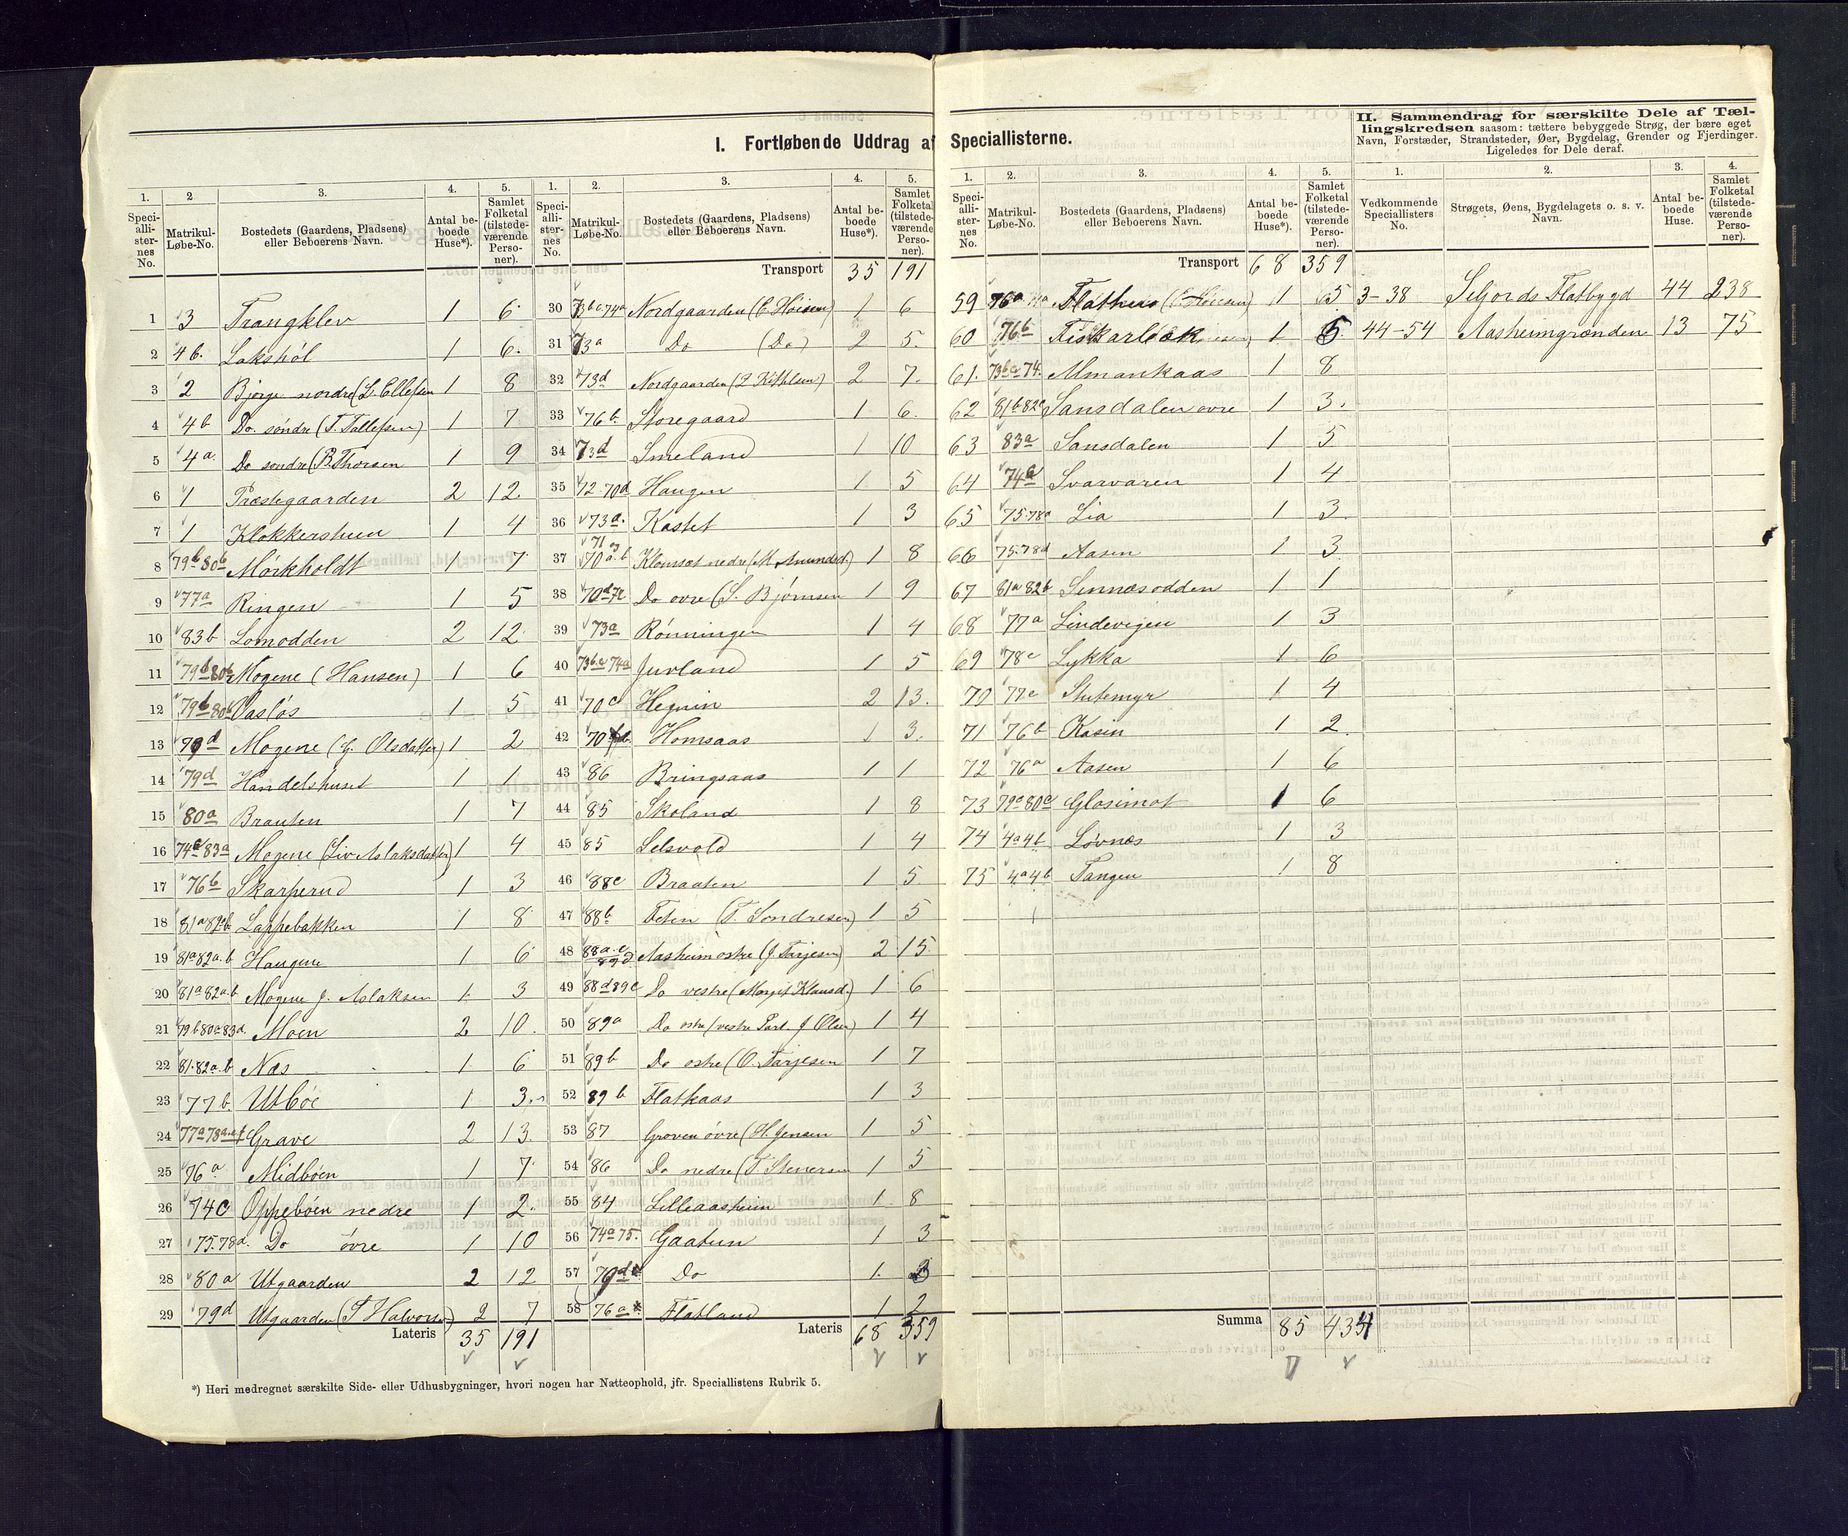 I. Fortløbende Uddrag af Speciallisterne.
II. Sammendrag for særskilte Dele af Tællingskredsen saasom: tættere bebyggede Strøg, der bære eget
Navn, Forstæder, Strandsteder, Øer, Bygdelag, Grender og Fjerdinger.
Ligeledes for Dele deraf.
1. 2. 3. 4. 5.
Speciallisternes No. Matrikul-Løbe-No. Bostedets (Gaardens, Pladsens) eller Beboerens Navn. Antal beboede Huse*). Samlet Folketal (tilstedeværende Personer).
1 3 Trangklev 1 6
2 4b. Lakshøl 1 6.
3 2 Bjørge nordre (S. Ellefsen 1 8
4 4b Do. søndre (T. Tallefsen) 1 7
5 4a. Do søndre (B. Thorsen 1 9
6 1 Præstegaarden 2 12.
7 1 Klokkersheien 1 4
8 79b 80b Mørkholdt 1 7
9 77a Ringen 1 5
10 83b Lomodden 2 12
11 79b 80b Mogene (Hansen) 1 6
12 79b 80b Vasløs 1 5
13 79d Mogene (G. Olsdatter) 1 2
14 79d Handelshuset 1 1
15 80a Brauten 1 7
16 74a 83a Mogene (Liv Aslaksdatter) 1 4
17 76b Skarperud 1 3
18 81a 82b Lappebakken 1 8
19 81a 82a.b Haugene 1 6
20 81a 82a.b Mogene J. Aslaksen 1 3
21 79b 80a 83d. Moen 2 10.
22 81.82a.b Næs 1 6
23 77b Utbøe 1 3.
24 77a 78a.e.f Grave 2 13.
25 76a Midbøen 1 7
26 74c Oppebøen nedre 1 2.
27 75.78d. Do øvre 1 10
28 80a Utgaarden 2 12
29 79d Utgaarden (T Halvorsen) 2 7
Lateris 35 191
1. 2. 3. 4. 5.
Speciallisternes No. Matrikul-Løbe-No. Bostedets (Gaardens, Pladsens) eller Beboerens Navn. Antal beboede Huse*). Samlet Folketal (tilstedeværende Personer).
Transport 35 191
30 73b.c.74a Nordgaarden (E Høisen) 1 6
31 73a Do (Do) 2 5.
32 73d Nordgaarden (L Kittilsen) 2 7.
33 76b. Storegaard 1 6.
34 73d Smeland 1 10
35 72-70d Haugen 1 5
36 73a. Kastet 1 3
37 71 og 70a.b Klomset nedre (M. Amundsd.) 1 8
38 70d 72 Do øvre (S. Bjørnsen 1 9
39 73a Rønningen 1 4
40 73b.c 74a Juvland 1 5
41 70c Hegnin 2 13.
42 70b. Homsaas 1 3.
43 86 Bringsaas 1 1
44 85 Skoland 1 8
45 85 Selsvold 1 4
46 88c Braaten 1 5.
47 88b Feten (T. Søndresen) 1 5
48 88a.c 89d Aasheim østre (J Tarjesen) 2 15.
49 88d 89c Do vestre (Margit Klausd.) 1 6
50 89a Do østre (vestre Part. J Olsen) 1 4
51 89b Do østre (O. Tarjesen 1 7
52 89b Flatkaas 1 3
53 87 Groven øvre (H. Jensen 1 5
54 86 Do nedre (T. Stenersen 1 5
55 84 Lilleaasheim 1 8
56 74a 75. Gaatun 1 3
57 79d Do 1. 3
58 76a Flatland 1 2
Lateris 68 359
*) Heri medregnet særskilte Side- eller Udhusbygninger, hvori nogen har Natteophold, jfr. Speciallistens Rubrik 5.
1. 2. 3. 4. 5.
Speciallisternes No. Matrikul-Løbe-No. Bostedets (Gaardens, Pladsens) eller Beboerens Navn. Antal beboede Huse*). Samlet Folketal (tilstedeværende Personer).
Transport 68 359
59 76a Flathus (E Høisen) 1 5
60 76b Fiskarbæk 1 5.
61. 73b.c 74. Almankaas 1 8
62 81b 82c Sansdalen øvre 1 3.
63 83a Sansdalen 1 5
64 74a Svarvaren 1 4
65 75-78a Lia 1 3.
66 75.78d Aasen 1 3
67 81a 82b Sinnæsodden 1 1
68 77a Lindevigen 1 3
69 78c Lykka 1 6
70 77c Stutemyr 1 4
71 76b Kasin 1 2.
72 76a Aasen 1 6
73 79a 80a Glosimot 1 6
74 4a 4b Løvnæs 1 3
75 4a 4b Tangen 1 8
Summa 85 434
1. 2. 3. 4.
Vedkommende Speciallisters No. Strøgets, Øens, Bygdelagets o. s. v. Navn. Antal beboede Huse. Samlet Folketal (tilstedeværende Personer).
3-38 Seljords Flatbygd 44 238
44-54 Aasheimgrænden 13 75